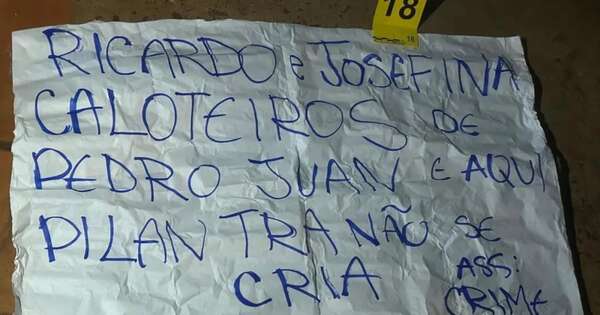 18
18
RICARDO e JOSEFINA
CALOTEIROS DE
PEDRO JUAN E AQUI
PILANTRA NÃO SE
CRIA ASS:
CRIME